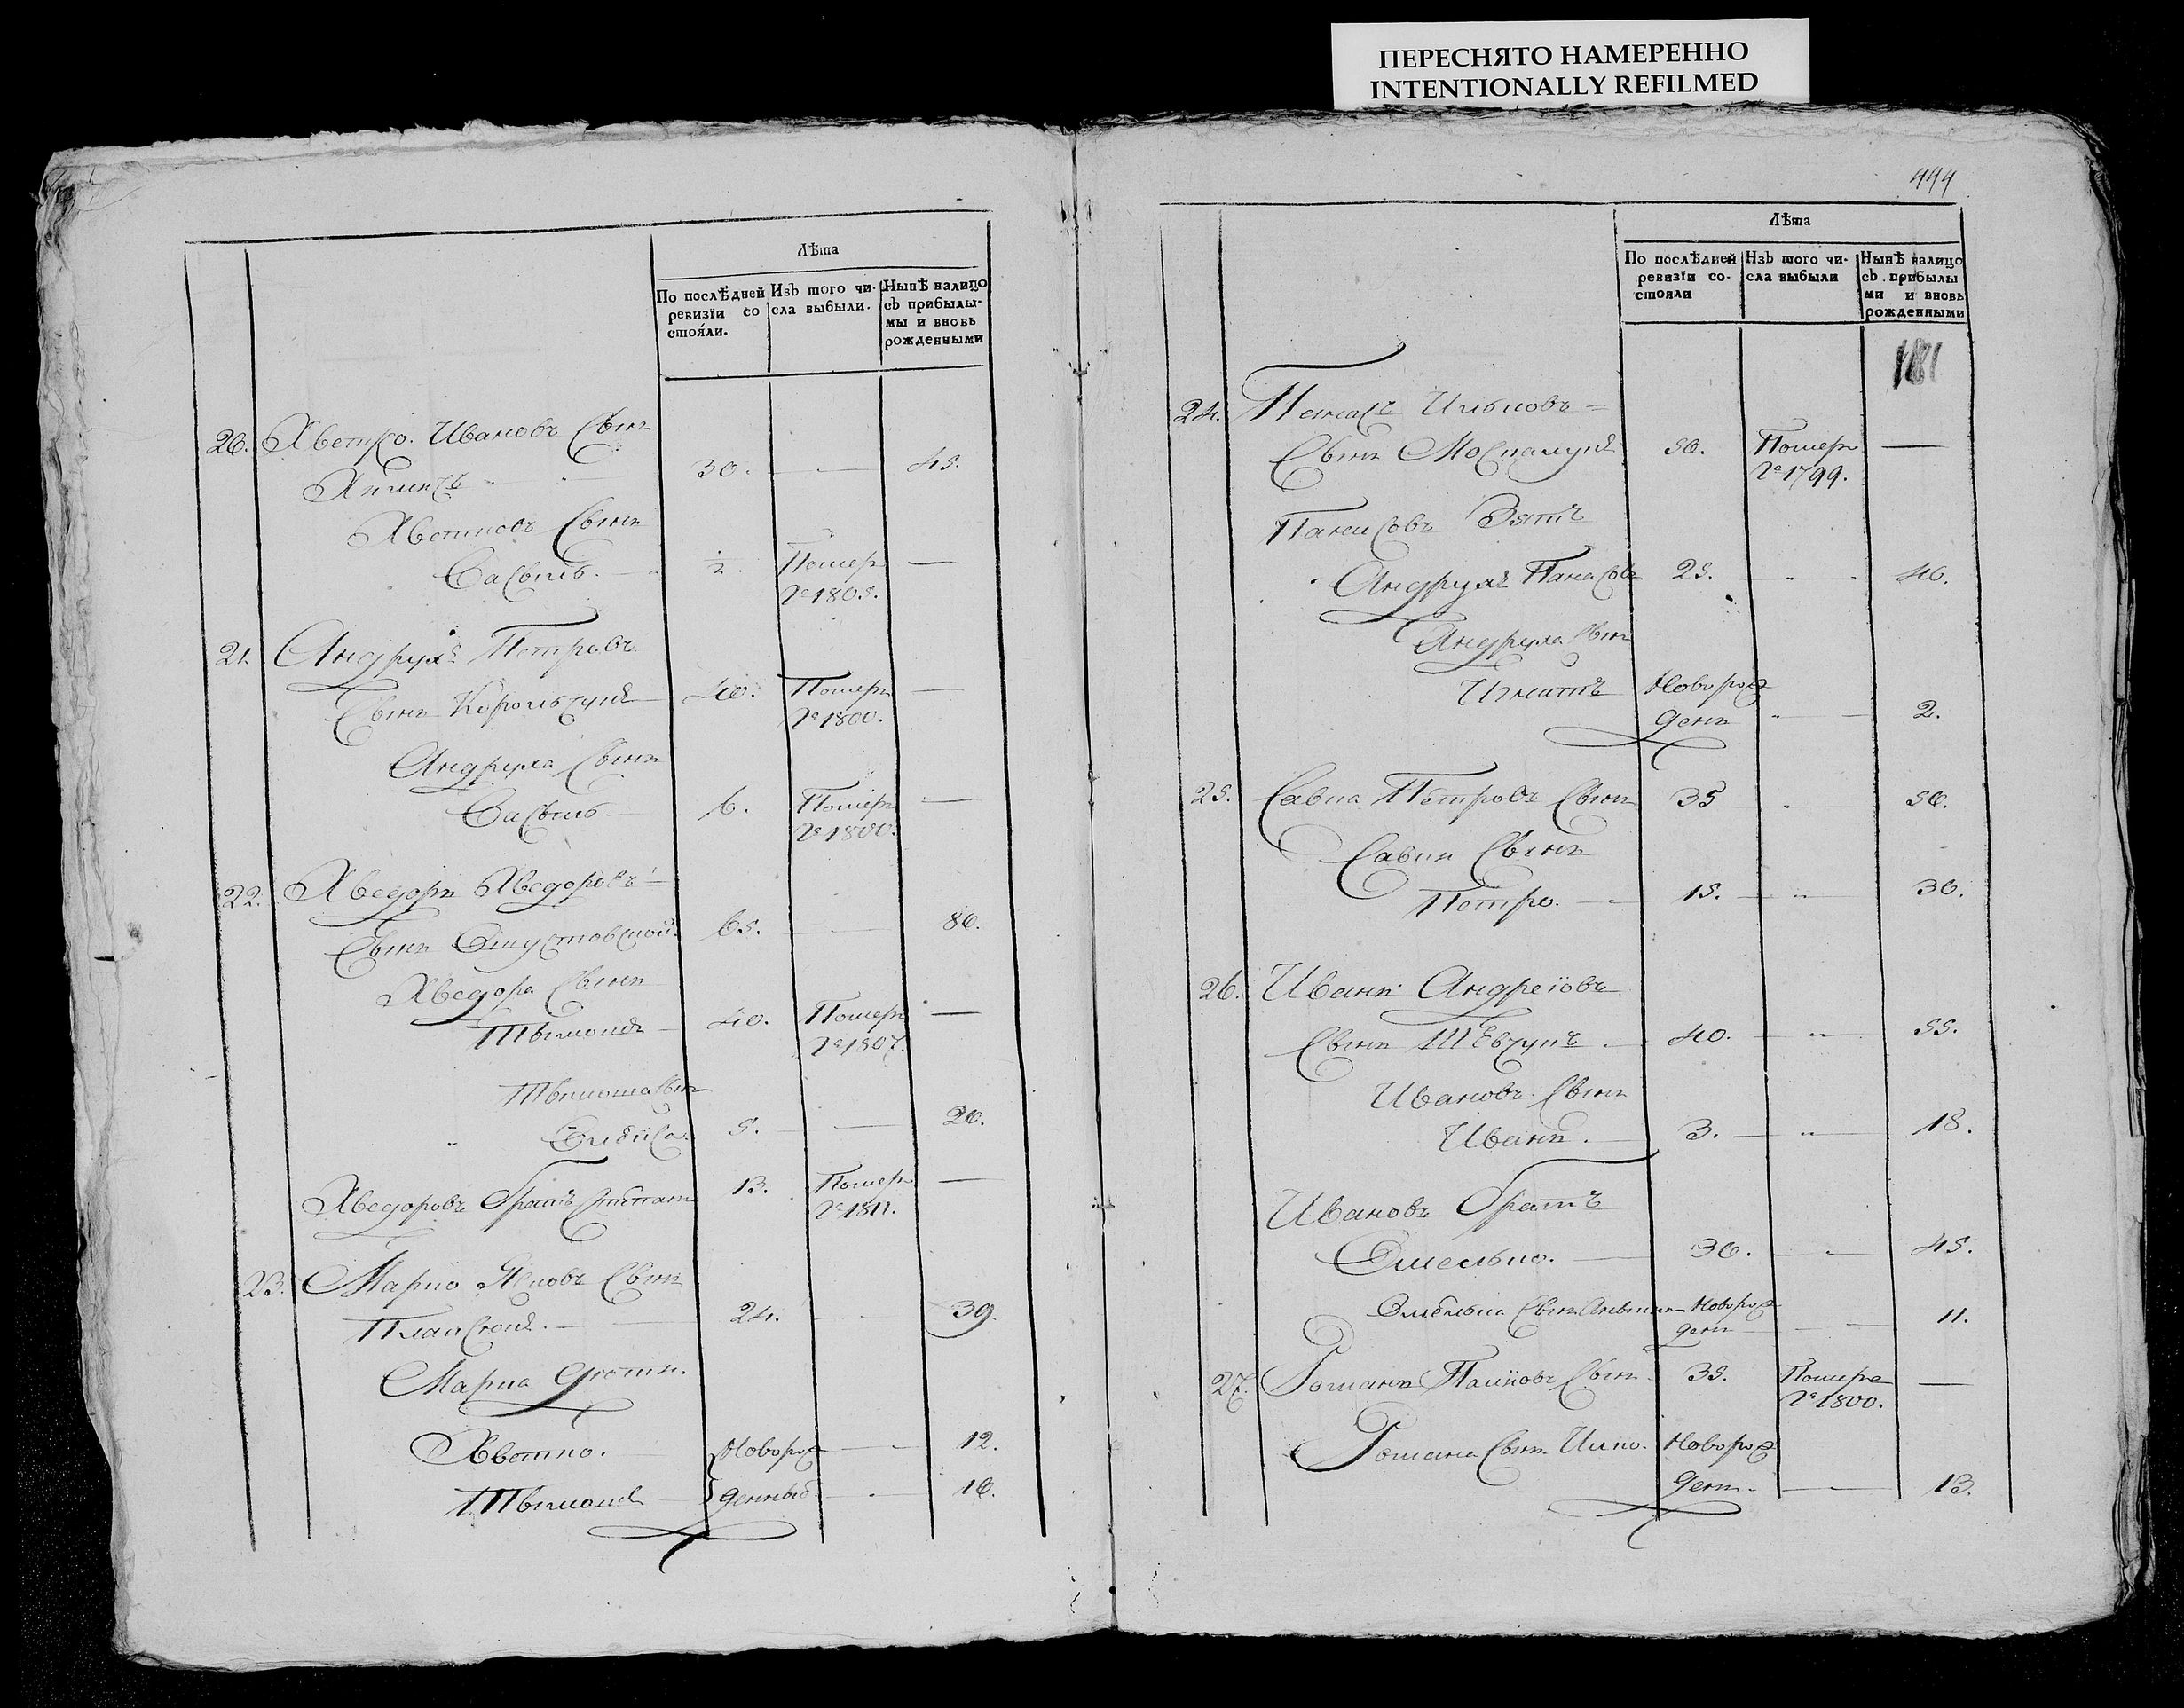 ПЕРЕСНЯТО НАМЕРЕННО
INTENTIONALLY REFILMED
Лѣта
По послѣдней ревизїи со стояли.
Изъ того числа выбыли.
Нынѣ налицо съ прибылымы и вновь рожденными
20. Хветко Ивановъ Сынъ
30. 45.
Хветковъ Сынъ
Василь. ½. Померъ —
1805.
21. Андрухъ Петровъ
Сынъ 40. Померъ —
1800.
Андруха Сынъ
Василь. 6. Померъ —
1800.
22. Хведоръ Хведоровъ
Сынъ 65. 80.
Хведора Сынъ
Тымошъ 40. Померъ —
1807.
Тымоша Сынъ
5. 20.
Хведоровъ Братъ Степанъ 13. Померъ —
1811.
23. Марко Яковъ Сынъ
24. 39.
Марка дѣти.
Хветко. Новорож 12.
Тымошъ денные 10.
444
Лѣта
По послѣдней ревизїи состояли
Изъ того числа выбыли
Нынѣ налицо съ прибылыми и вновь рожденными
24. Панасъ
Сынъ 50. Померъ —
1799.
Панасовъ Зять
Андрухъ Панасовъ 25. 40.
Андруха Сынъ
Игнатъ Новорож
денъ 2.
25. Савка Петровъ Сынъ 35 50.
Савки Сынъ
Петро. 15. 30.
26. Иванъ Андреіовъ
Сынъ Шевчукъ 40. 55.
Ивановъ Сынъ
Иванъ. 3. 18.
Ивановъ Братъ
Омелько. 30. 45.
Омелька Сынъ Новорож
денъ 11.
27. Романъ Сынъ 35. Помере —
1800.
Романа Сынъ Илко. Новорож
денъ. 13.